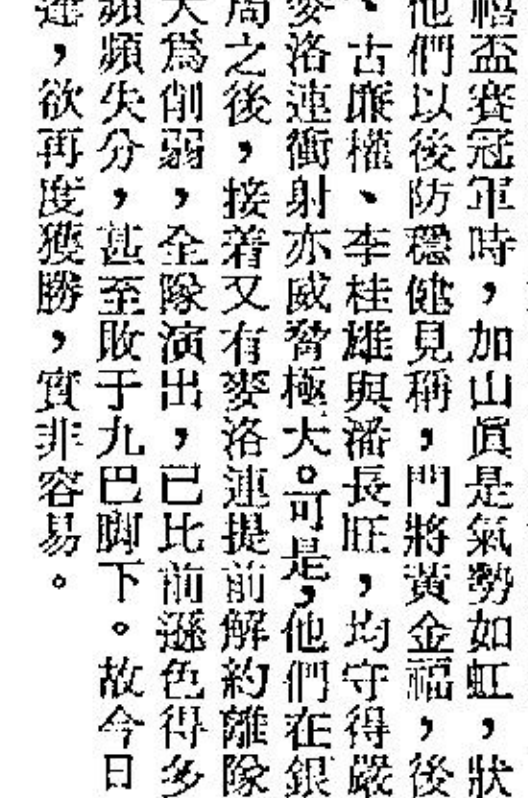 盃賽冠軍時，加山眞是氣勢如虹，狀
他們以後防穩健見稱，門將黃金福，後
、古廉權、李桂雄與潘長旺，均守得嚴
麥洛連衝射亦威脅極大。可是，他們在銀
周之後，接着又有麥洛連提前解約離隊
大爲削弱，全隊演出，已比前遜色得多
頻頻失分，甚至敗于九巴脚下。故今日
，欲再度獲勝，實非容易。